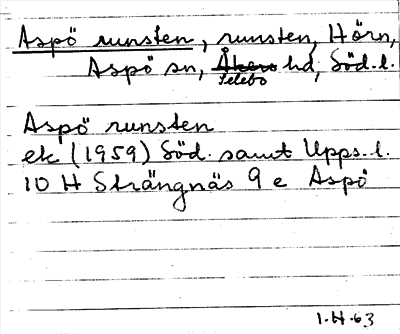 Aspö runsten, runsten, Hörn,
Aspö sn, Åkers hd, Söd. l.
Selebo
Aspö runsten
ek (1959) Söd. samt Upps. l.
10 H Strängnäs 9 e Aspö
1.H.63